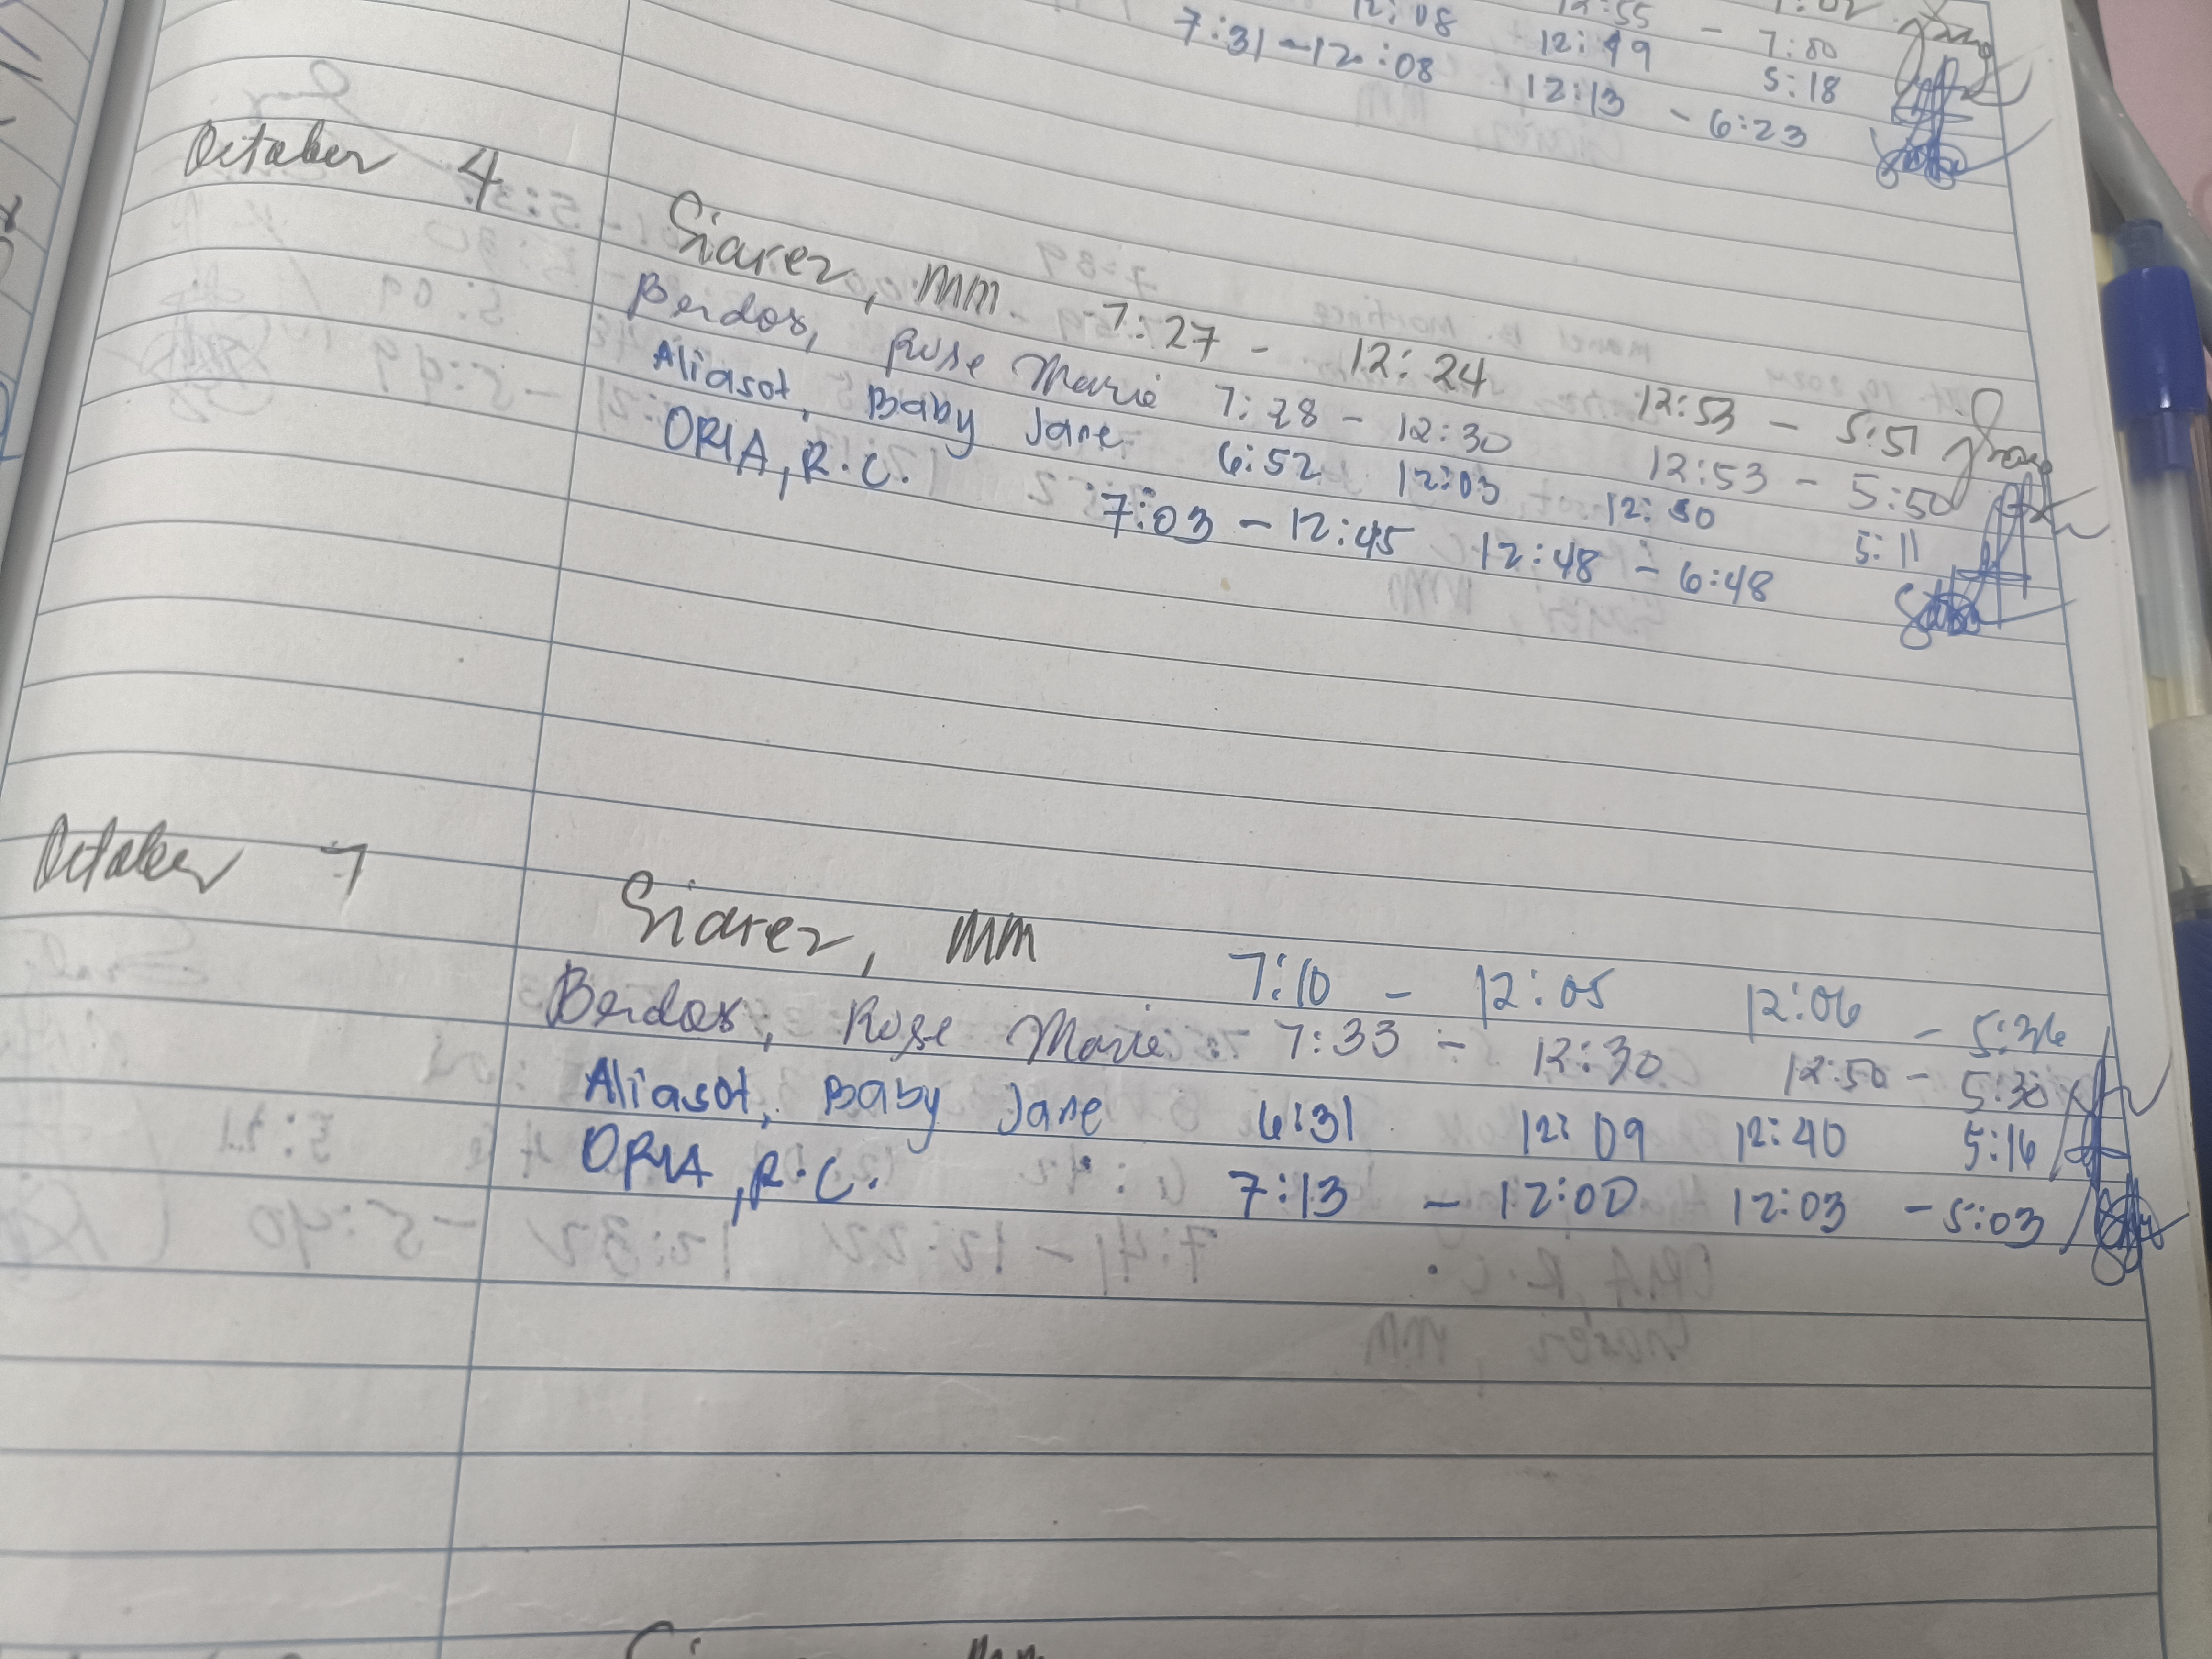 12:08 12:49 5:18
7:31-12:08 12:13 - 6:23
October 4
Siarez, MM 7:27 - 12:24 12:53 - 5:51
Berdos, Rose Marie 7:28 - 12:30 12:53 - 5:50
Aliasot, Baby Jane 6:52 12:03 12:30 5:11
ORIA, R.C. 7:03 - 12:45 12:48 - 6:48
October 7
Siarez, MM 7:10 - 12:05 12:06 - 5:36
Berdos, Rose Marie 7:33 - 12:30 12:50 - 5:30
Aliasot, Baby Jane 6:31 12:09 12:40 5:16
ORIA, R.C. 7:13 - 12:00 12:03 - 5:03